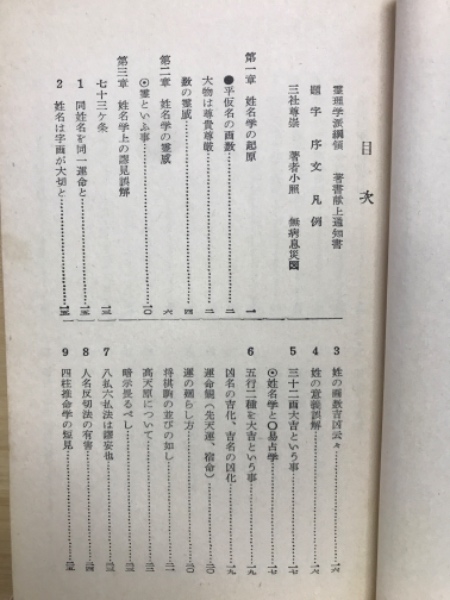 目次
霊理学派綱領　著書献上通知書
題字　序文　凡例
三社尊崇　著者小照　無病息災図
第一章　姓名学の起原……一
●平仮名の画数……二
大物は尊貴尊厳……二
数の霊威……四
第二章　姓名学の霊威……六
◎霊といふ事……一〇
第三章　姓名学上の謬見誤解
七十三ケ条……一三
1　同姓名を同一運命と……一五
2　姓名は字画が大切と……一五
3　姓の画数吉凶云々……一六
4　姓の意義誤解……一六
5　三十二画大吉という事……一七
◎姓名学と〇易占学……一七
6　五行二種を大吉という事……一九
凶名の吉化、吉名の凶化……一九
運命観（先天運、宿命）……二〇
運の廻らし方……二〇
将棋駒の並びの如し……二一
高天原について……二二
暗示畏るべし……二二
7　八払六払法は謬妄也……二三
8　人名反切法の有害……二四
9　四柱推命学の短見……二五